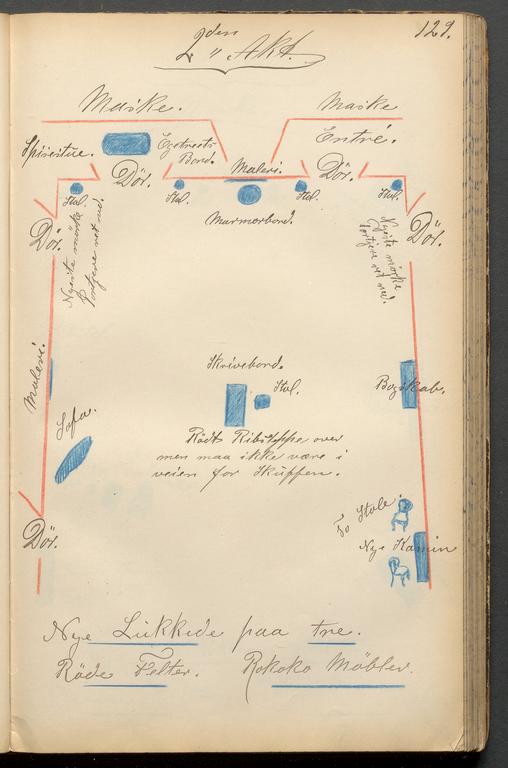 129.
2den Akt.
Maske.
Maske
Spisestue.
Bord.
Entré.
Dör.
Maleri.
Dör.
Stol.
Stol.
Stol.
Stol.
Marmorbord.
Dör.
Nyeste mörke
Portjere ret ned.
Nyeste mörke
Portjere ret ned.
Dör.
Maleri.
Skrivebord.
Stol.
Bogskab.
Sofa.
Rödt Ribsteppe over
men maa ikke være i
veien for Skuffen.
To Stole.
Nye Kamin
Dör.
Nye Lukkede paa tre.
Röde Felter.
Rokoko Möbler.